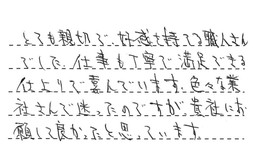 とても親切で、好感を持てる職人さん
でした。仕事も丁寧で満足できる
仕上りで喜んでいます。色々な業
社さんで迷ったのですが貴社にお
願いして良かったと思っています。